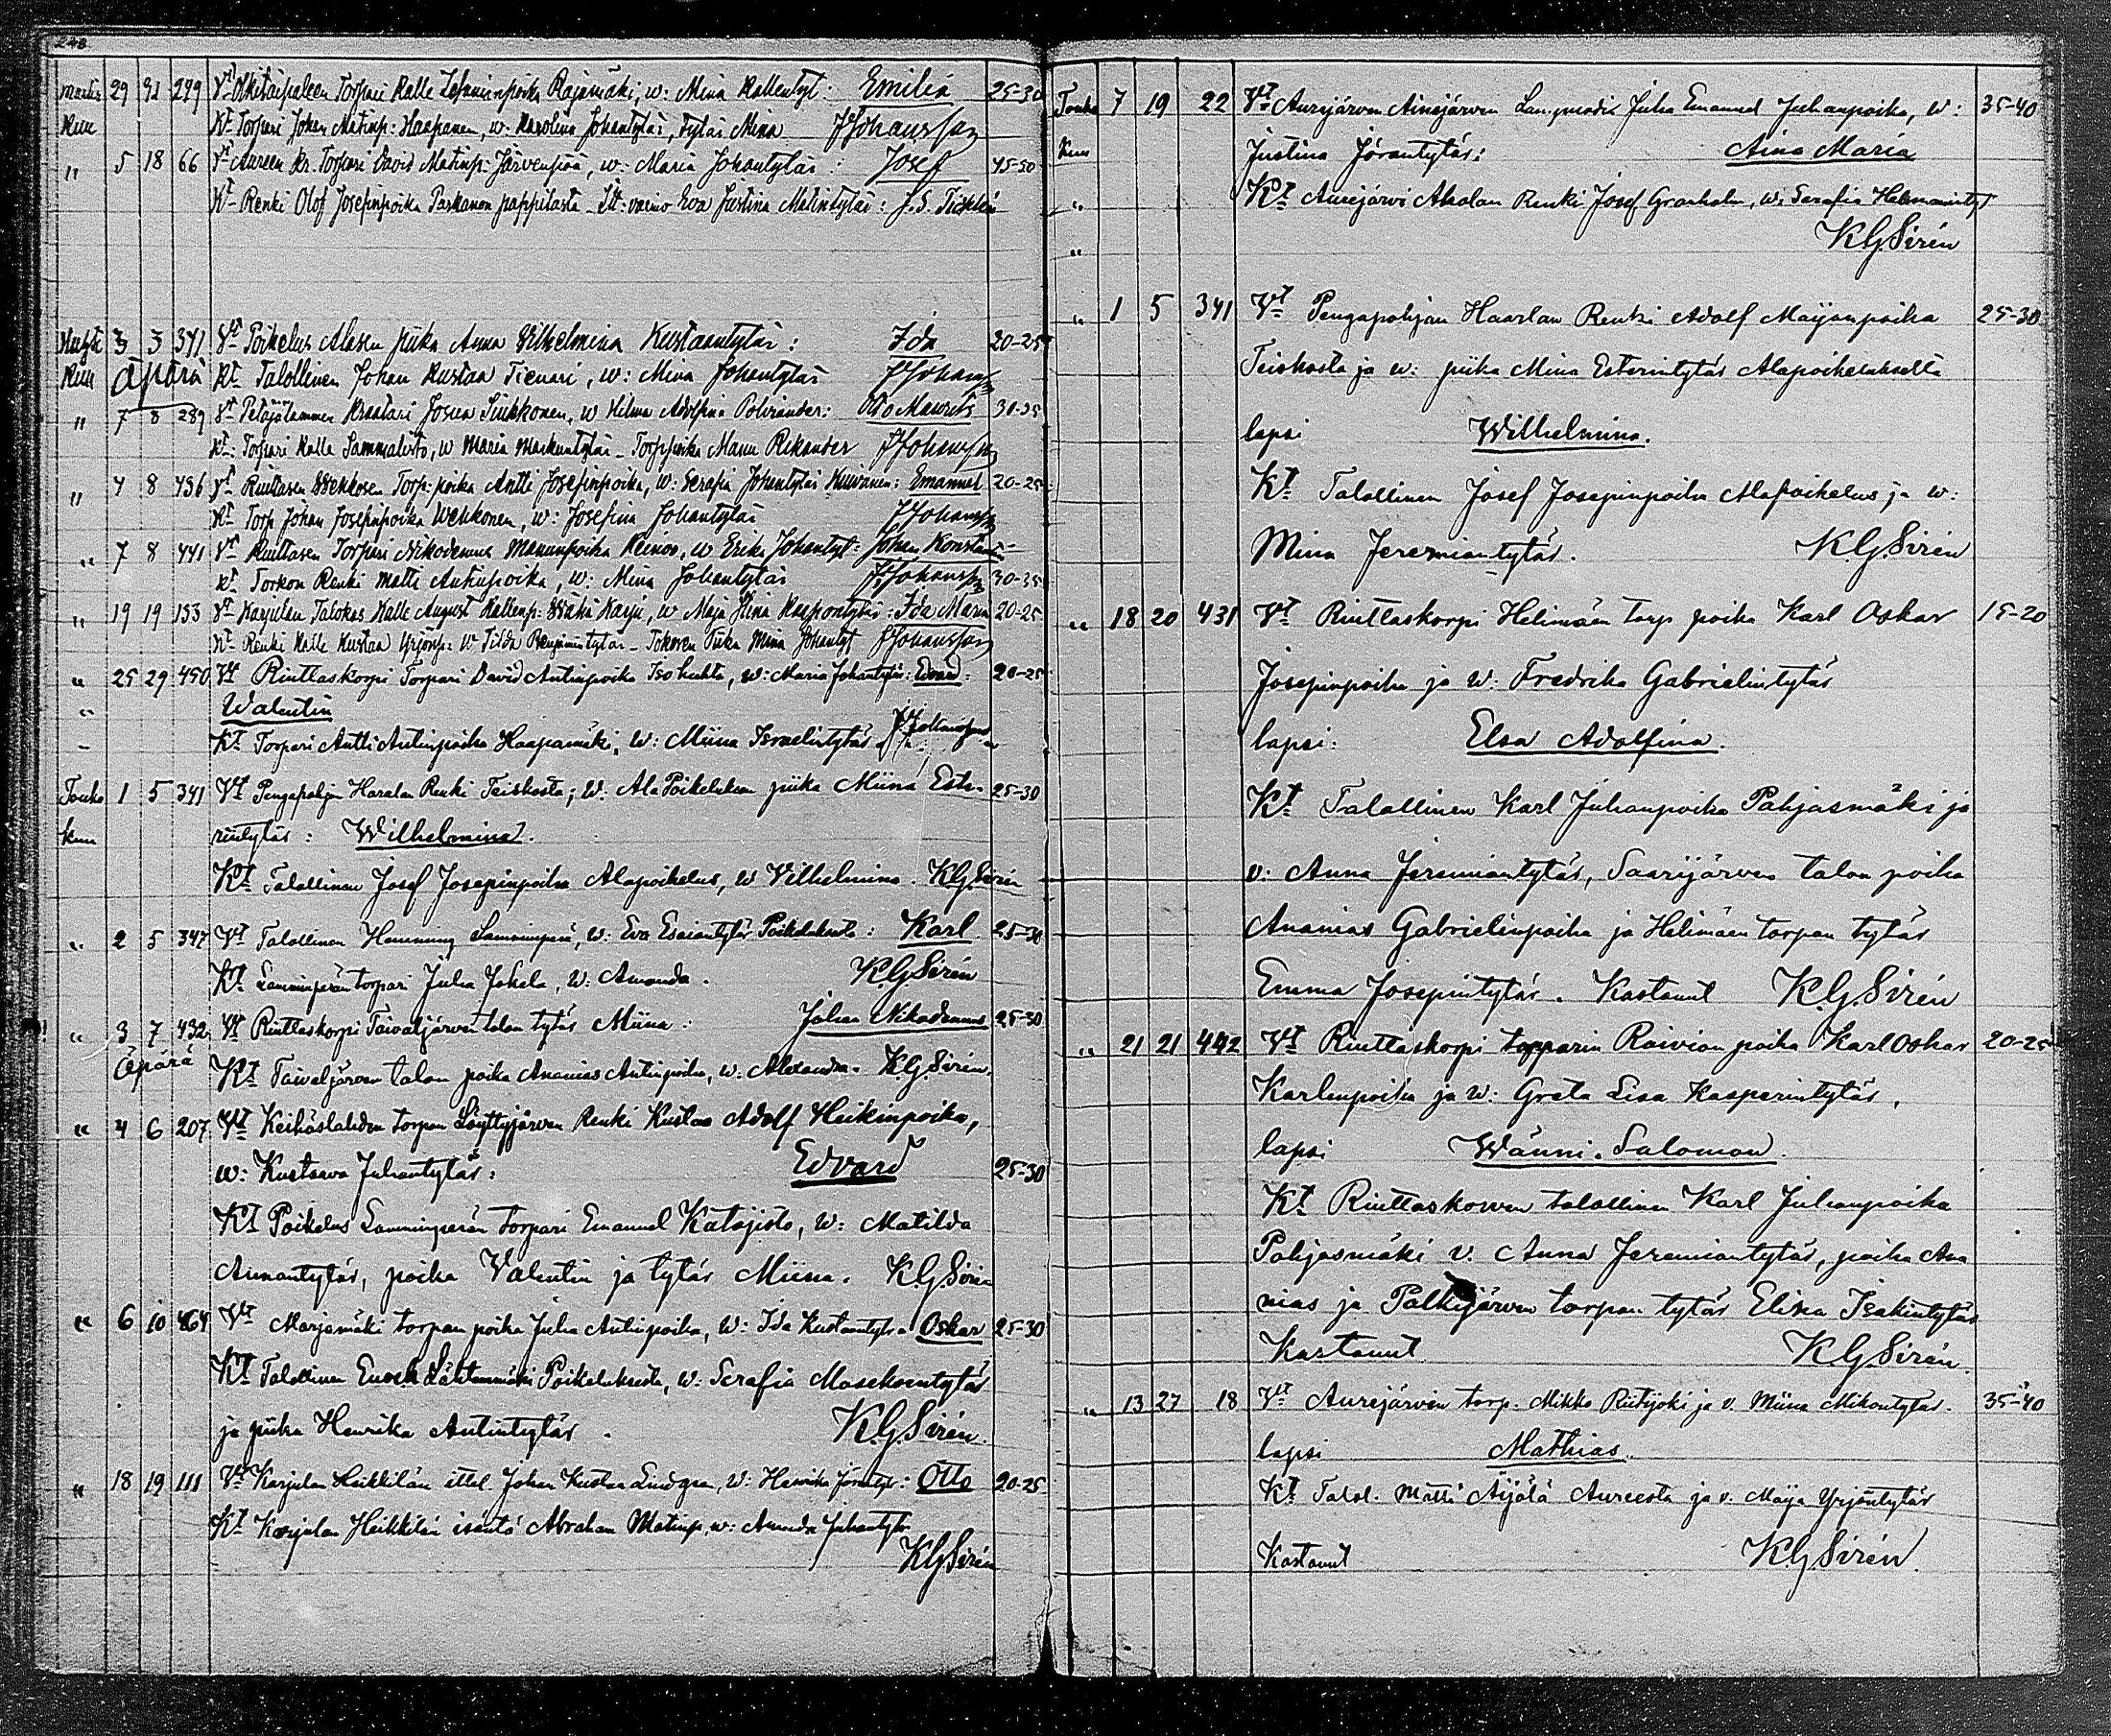 248
29 91 299 Vt Torpari Kalle Rajamäki, w: Mina Kallentyt: Emilia 25-30
Kuu Kt Torpari Johan Matinp: Haapanen, w: Karolina Johantytär, tytär Mina JJohansson
" 5 18 66 Vt Aureen Kr. Torpari David Matinp: Järvenpää, w: Maria Johantytär: Josef 45-50
Kt Renki Olof Josefinpoika Parkanon pappilasta - Itt: vaimo Eva Justina Matintytär: J.S.
3 3 341 Vt Poikelus Alasen piika Anna Vilhelmina Kustaantytär: Ida 20-25
Kuu äpärä Kt Talollinen Johan Kustaa Tienari, w: Mina Johantytär JJohansson
" 7 8 289 Vt Kraatari Josua Sinkkonen, w Hilma Adolfina Polviander: Otto Maurits 30-35
Kt: Torpari Kalle Sammalisto, w Maria Markuntytär - Torp.poika Manu Rikander JJohansson
" 4 8 436 Vt Riuttasen Wehkosen Torp: poika Antti Josefinpoika, w: Serafia Johantytär Kuivanen: Emanuel 20-25
Kt Torp Johan Josefinpoika Wehkonen, w: Josefina Johantytär JJohansson
" 7 8 441 Vt Riuttasen Torpari Nikodemus Manunpoika Keinos, w Erika Johantyt: Johan Konstantin
Kt Torkon Renki Matti Antinpoika, w: Mina Johantytär JJohansson 30-35
" 19 19 153 Vt Karjulan Talokas Kalle August Kallenp: Karju, w Maja Stina Kasperintytär: Ida Maria 20-25
Kt Renki Kalle Kustaa Yrjönp: w Tilda Benjamintytär - Tokoren Piika Mina Johantyt JJohansson
" 25 29 450 Vt Riuttaskorpi Torpari David Antinpoika Isohuhta, w: Maria Johantytär: Edvard: 20-25
" Walentin
Kt Torpari Antti Antinpoika Haapamäki, w: Miina Israelintytär JJohansson
Touko 1 5 341 Vt Pengapohjan Haralan Renki Teiskosta; w: Ala Poikeluksen piika Miina Este- 25-30
kuu rintytär: Wilhelmina.
Kt Talollinen Josef Josepinpoika Alapoikelus, w Vilhelmina. KGSirén
" 2 5 347 Vt Talollinen Hemming Lamminperä, w: Eva Esaiantytär Poikeluksesta: Karl 25-30
Kt Lamminperän torpari Juha Jokela, w: Amanda. KGSirén
" 3 7 432 Vt Riuttaskorpi Taivaljärven talon tytär Miina: Johan Nikodemus 25-30
äpärä Kt Taivaljärven talon poika Ananias Antinpoika, w: Alexandra. KG.Sirén.
" 4 6 207 Vt Keihäslahden torpan Löyttyjärven Renki Kustaa Adolf Heikinpoika,
w: Kustaava Juhantytär: Edvard 25-30
Kt Poikelus Lamminperän torpari Emanuel Katajisto, w: Matilda
Annantytär, poika Valentin ja tytär Miina. KGSirén
" 6 10 464 Vt Marjamäki torpan poika Juha Antinpoika, w: Ida Kustaantytär Oskar 25-30
Kt Talollinen Enock Lähteenmäki Poikeluksesta, w: Serafia Moseksentytär
ja piika Henrika Antintytär. K.G.Sirén.
" 18 19 111 Vt Karjulan Heikkilän ittel. Johan Kustaa Lindgren, w: Henrika Jörantytr: Otto 20-25
Kt Karjulan Heikkilän isäntä Abraham Matinp, w: Amanda Juhantytr
KGSirén
Touko 7 19 22 Vt Aurejärven Juha Emanuel Juhanpoika, w: 35-40
Kuu Justina Jörantytär: Aina Maria
" Kt Aurejärvi Aholan Renki Josef Granholm, w: Serafia Hermanintyt
" KGSirén
" 1 5 341 Vt Pengapohjan Haarlan Renki Adolf Maijanpoika 25-30
Teiskosta ja w: piika Mina Esterintytär Alapoikelukselta
lapsi Wilhelmina.
Kt Talollinen Josef Josepinpoika Alapoikelus ja w:
Mina Jeremiantytär. KGSirén
" 18 20 431 Vt Riuttaskorpi Helimäen torp poika Karl Oskar 15-20
Josepinpoika ja w: Fredrika Gabrielintytär
lapsi: Elsa Adolfina.
Kt Talollinen Karl Juhanpoika Pohjasmäki ja
v: Anna Jeremiantytär, Saarijärven talon poika
Ananias Gabrielinpoika ja Helimäen torpan tytär
Emma Josepintytär. Kastanut KG.Sirén
" 21 21 442 Vt Riuttaskorpi torparin Raivion poika Karl Oskar 20-25
Karlenpoika ja w: Greta Lisa Kasperintytär,
lapsi Wänni Salomon.
Kt Riuttaskorven talollinen Karl Juhanpoika
Pohjasmäki v. Anna Jeremiantytär, poika Ana
nias ja Palkijärven torpan tytär Elina Isakintytär
Kastanut KGSirén.
" 13 27 18 Vt Aurejärven torp. Mikko Riitijoki ja v. Miina Mikontytär. 35-40
lapsi Mathias.
Kt Talol. Matti Äijälä Aureesta ja v. Maija Yrjöntytär
Kastanut KGSirén.